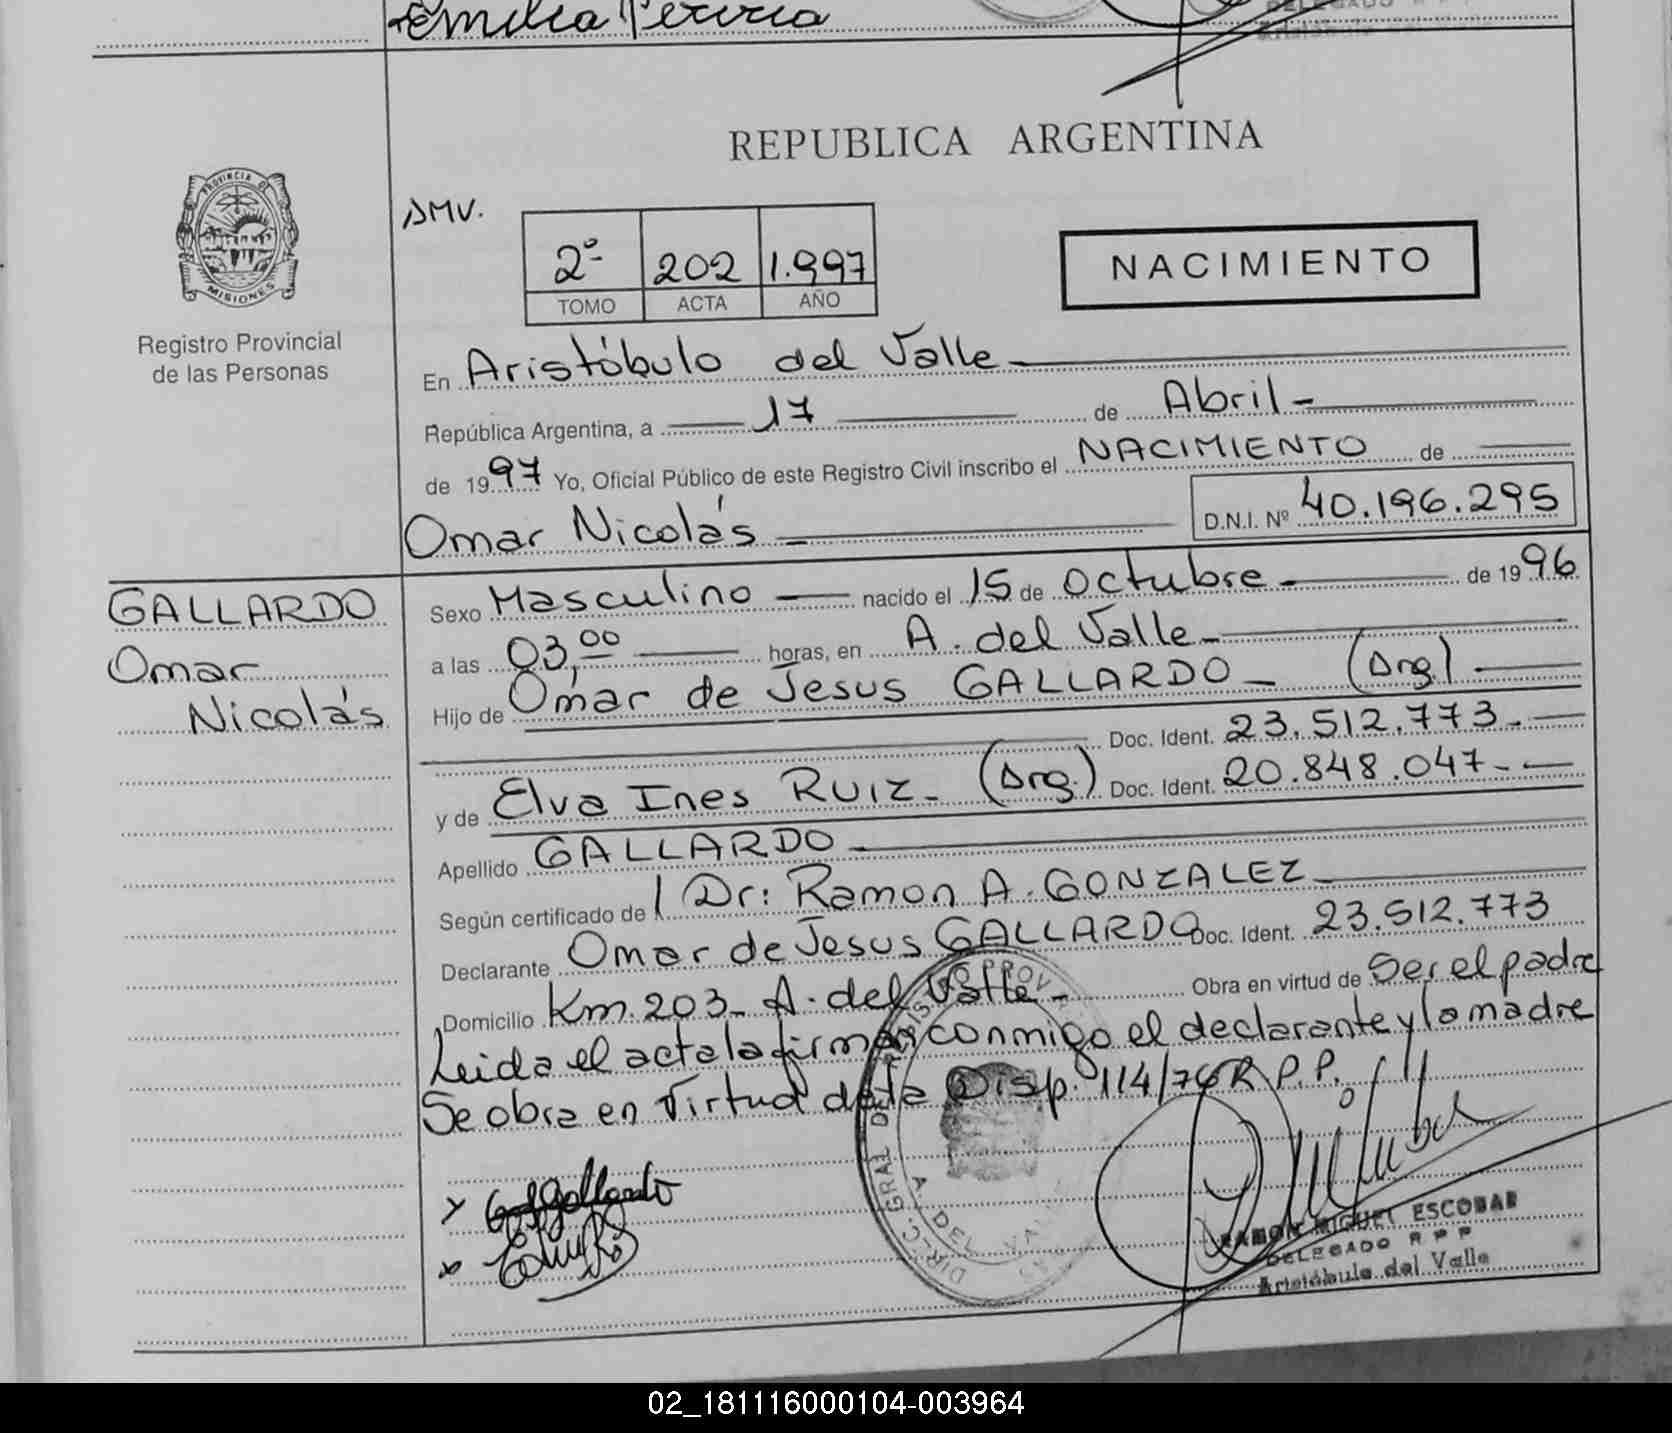 Emilia Pereria
DELEGADO R P P
PROVINCIA DE
MISIONES
Registro Provincial
de las Personas
REPUBLICA ARGENTINA
DMV.
2º 202 1.997
TOMO ACTA AÑO
NACIMIENTO
En Aristóbulo del Valle
República Argentina, a 17 de Abril
de 1997 Yo, Oficial Público de este Registro Civil inscribo el NACIMIENTO de
Omar Nicolás D.N.I. Nº 40.196.295
GALLARDO
Omar
Nicolás
Sexo Masculino nacido el 15 de octubre de 1996
a las 03,00 horas, en A. del Valle
Hijo de Omar de Jesus GALLARDO (Arg)
Doc. Ident. 23.512.773
y de Elva Ines RUIZ (Arg.) Doc. Ident. 20.848.047
Apellido GALLARDO
Según certificado de Dr: Ramon A. GONZALEZ
Declarante Omar de Jesus GALLARDO Doc. Ident. 23.512.773
Domicilio Km. 203 A. del Valle Obra en virtud de Ser el padre
Leida el acta la firman conmigo el declarante y la madre
Se obra en Virtud de la Disp. 114/76 R.P.P.
x Gallardo
x
DIREC. GRAL DE
A. DEL VALLE
RAMON MIGUEL ESCOBAR
DELEGADO R P P
Aristóbulo del Valle
02_181116000104-003964